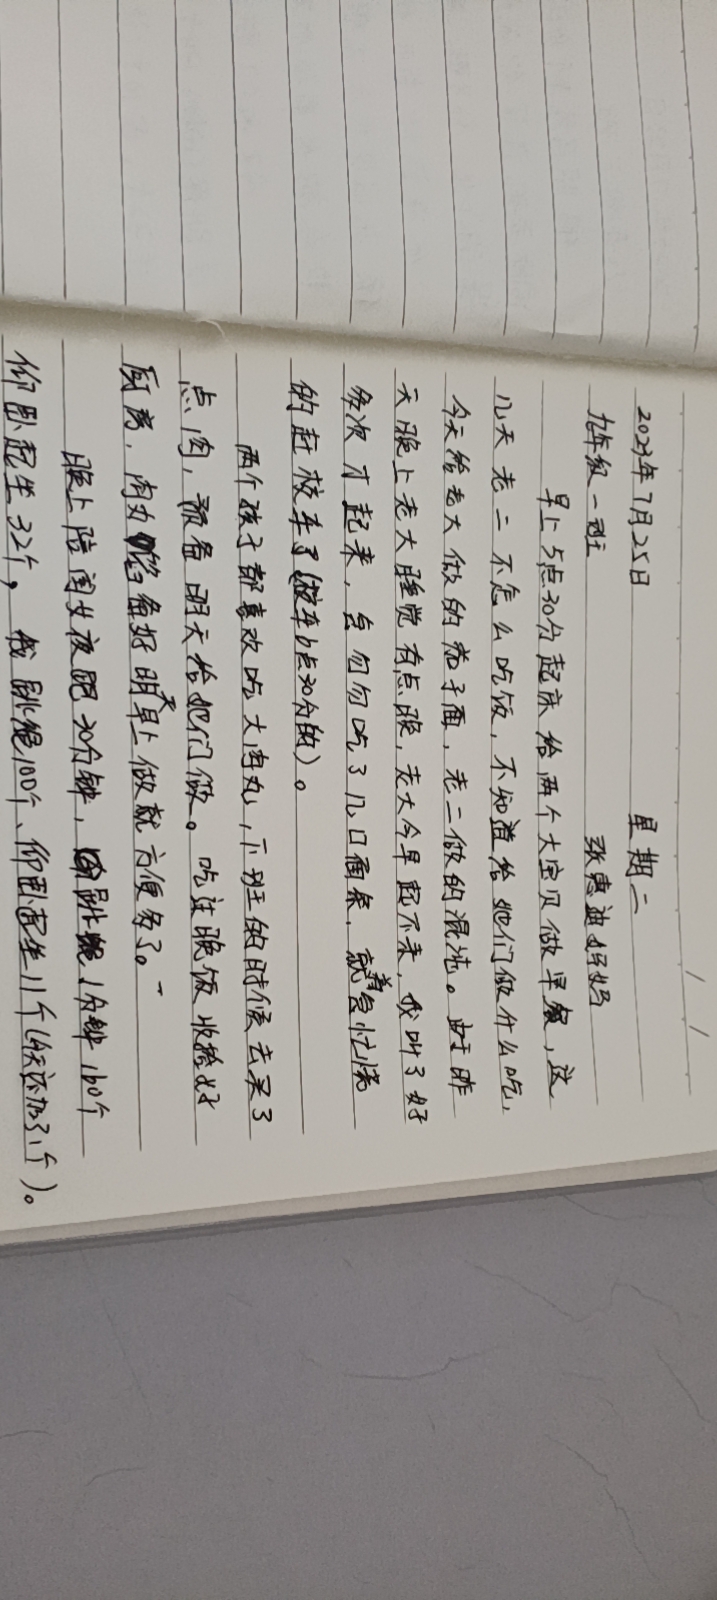 2023年7月25日 星期二
九年级一班 张惠迪妈妈
早上5点30分起床给两个大宝贝做早餐,这
几天老二不怎么吃饭,不知道给她们做什么吃,
今天给老大做的茄子面,老二做的混沌。由于昨
天晚上老大睡觉有点晚,老大今早起不来,我叫了好
多次才起来,自匆匆吃了几口面条,就着急忙慌
的赶校车了(校车6点30分的)。
两个孩子都喜欢吃大肉丸,下班的时候去买了
点肉,预备明天给她们做。吃过晚饭收拾好
厨房,肉丸备好明天早上做就方便多了。
晚上陪闺女夜跑30分钟,跳绳1分钟160个
仰卧起坐32个,我跳绳100个、仰卧起坐11个(今天还加了1个)。